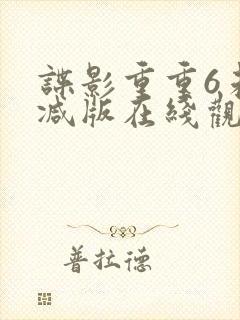 諜影重重6未
减版在綫觀
普拉德